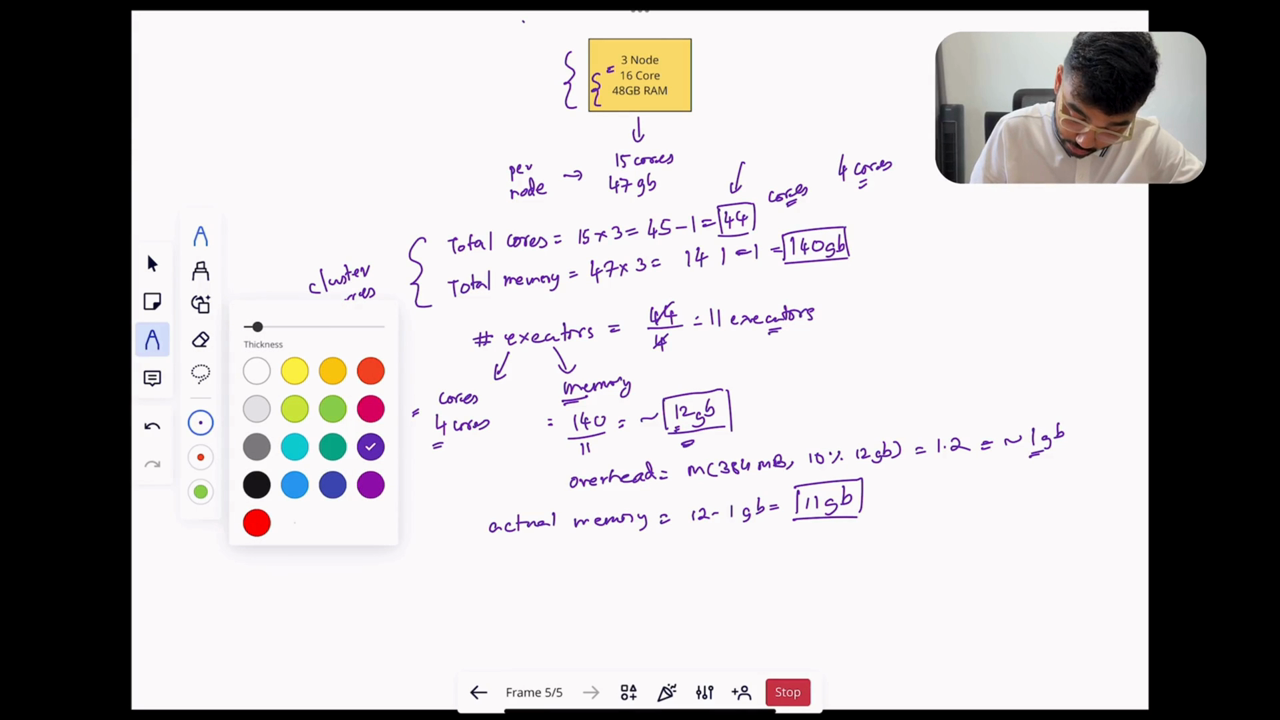 3 Node
16 Core
48GB RAM
per node → 15 cores
47 gb
4 cores
cores
Total cores = 15 × 3 = 45 - 1 = 44
Total memory = 47 × 3 = 141 - 1 = 140gb
cluster
# executors = 44/4 = 11 executors
cores
= 4 cores
memory
= 140/11 = ~ 12gb
overhead = M(384 MB, 10% 12gb) = 1.2 = ~ 1gb
actual memory = 12 - 1 gb = 11gb
Thickness
Frame 5/5
Stop